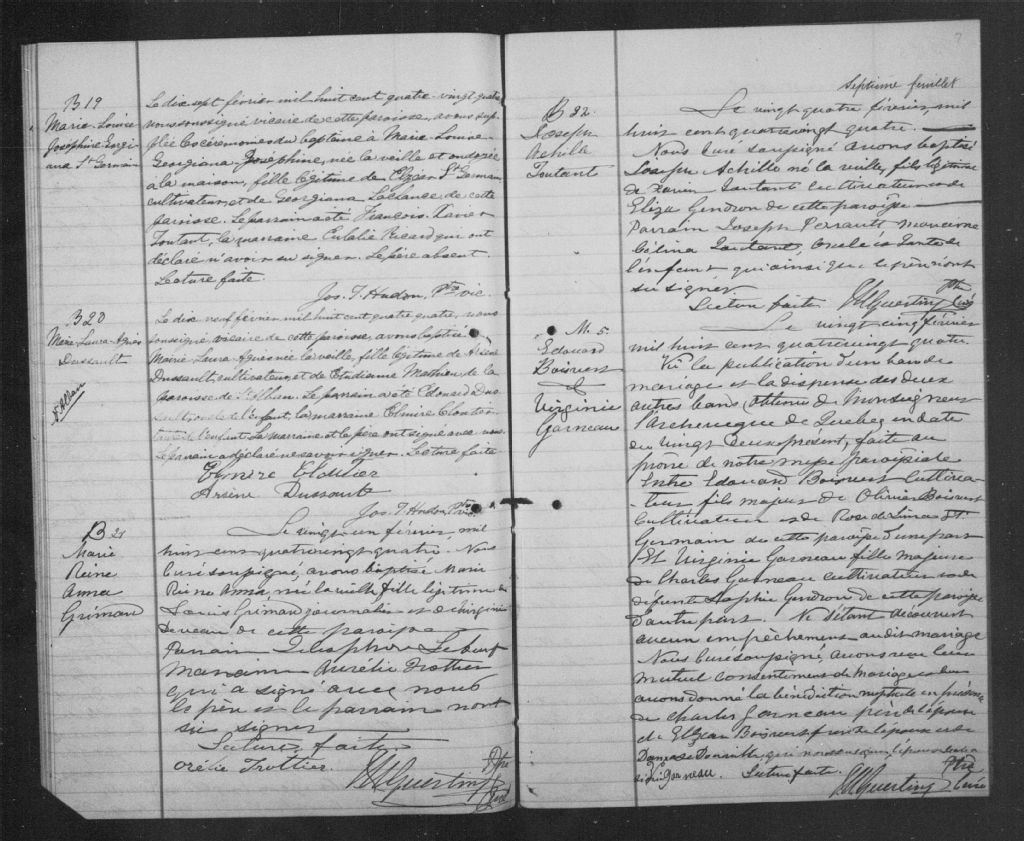 B 19
Marie-Louise
Josephine Georgi
ana St Germain
Le dix sept février mil huit cent quatre-vingt quatre
nous soussigné vicaire de cette paroisse, avons sup
plée les cérémonies du baptême à Marie-Louise
Georgiana-Josephine, née la veille et ondoyée
à la maison, fille légitime de Elzéar St Germain
cultivateur, et de Georgiana de cette
paroisse. Le parrain a été François-Xavier
Toutant, la marraine Eulalie Ricard qui ont
déclaré n'avoir su signer. Le père absent.
Lecture faite.
Jos. T. Hudon, Ptre vic.
B 20
Marie Laura Agnès
Dussault
St Alban
Le dix neuf février mil huit cent quatre quatre, nous
soussigné, vicaire de cette paroisse, avons baptisé
Marie-Laura-Agnès née la veille, fille légitime de Arsène
Dussault, cultivateur, et de Mathieu de la
paroisse de St Alban. Le parrain a été Edouard Dus
sault, oncle de l'enfant, la marraine Elmire Cloutier
tante de l'enfant. La marraine et le père ont signé avec nous.
Le parrain a déclaré ne savoir signer. Lecture faite
Elmire Cloutier
Arsène Dussault
Jos. T. Hudon, Ptre vic.
B 21
Marie
Reine
Anna
Grimard
Le vingt-un février, mil
huit cent quatrevingt quatre. Nous
Curé soussigné, avons baptisé Marie
Reine Anna, née la veille fille légitime de
Louis Grimard journalier et de Virginie
Deveau de cette paroisse
Parrain Telesphore Lebeuf
Marraine Aurélie Trottier
qui a signé avec nous
le père et le parrain n'ont
su signer
Lecture faite
Orélie Trottier.
Ptre
Curé
7
Septième feuillet
B 22.
Joseph
Achille
Toutant
Le vingt quatre février, mil
huit cent quatrevingt quatre.
Nous Curé soussigné avons baptisé
Joseph Achille né la veille, fils légitime
de Xavier Toutant cultivateur et de
Eliza Gendron de cette paroisse
Parrain Joseph Perrault Marraine
Célina Toutant, oncle et tante de
l'enfant qui ainsi que le père n'ont
su signer.
Lecture faite
Ptre
Curé
M. 5.
Edouard
Boisvert
&
Virginie
Garneau
Le vingt cinq février
mil huit cent quatrevingt quatre
Vu la publication d'un ban de
mariage et la dispense des deux
autres bans obtenue de Monseigneur
l'Archevêque de Québec, en date
du vingt deux présent, faite au
prône de notre messe paroissiale
Entre Edouard Boisvert Cultiva-
teur fils majeur de Olivier Boisvert
Cultivateur et de Rose de Lima St
Germain de cette paroisse d'une part
Et Virginie Garneau fille majeure
de Charles Garneau cultivateur et de
défunte Sophie Gendron de cette paroisse
d'autre part. Ne s'étant découvert
aucun empêchement au dit mariage
Nous Curé soussigné, avons reçu leur
mutuel consentement de mariage et leur
avons donné la bénédiction nuptiale en présence
de Charles Garneau père de l'épouse
de Elzéar Boisvert frère de l'époux et de
Garneau
Lecture faite.
Ptre
Curé